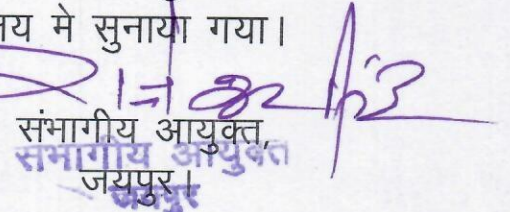 य मे सुनाया गया।
संभागीय आयुक्त,
संभागीय आयुक्त
जयपुर।
जयपुर